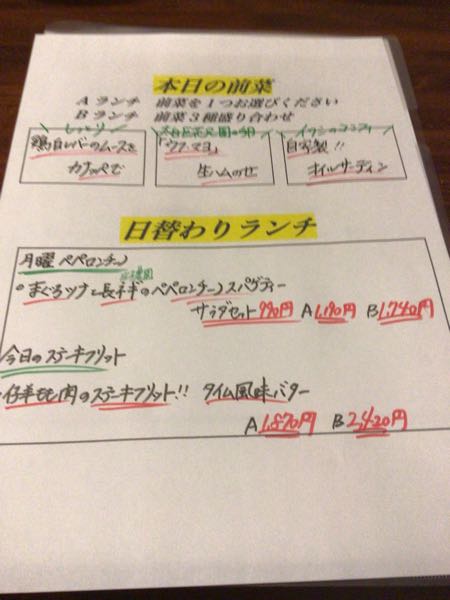 本日の前菜
Aランチ 前菜を1つお選びください
Bランチ 前菜3種盛り合わせ
しっとり
鶏白レバーのムースを
カナッペで
「ウフ・マヨ」
生ハムのせ
イワシのコンフィ
自家製!!
オイルサーディン
日替わりランチ
月曜ペペロンチーノ
まぐろツナと長ネギのペペロンチーノスパゲティー
サラダセット990円 A1,190円 B1,740円
今日のステーキフリット
仔羊もも肉のステーキフリット!! タイム風味バター
A1,870円 B2,420円